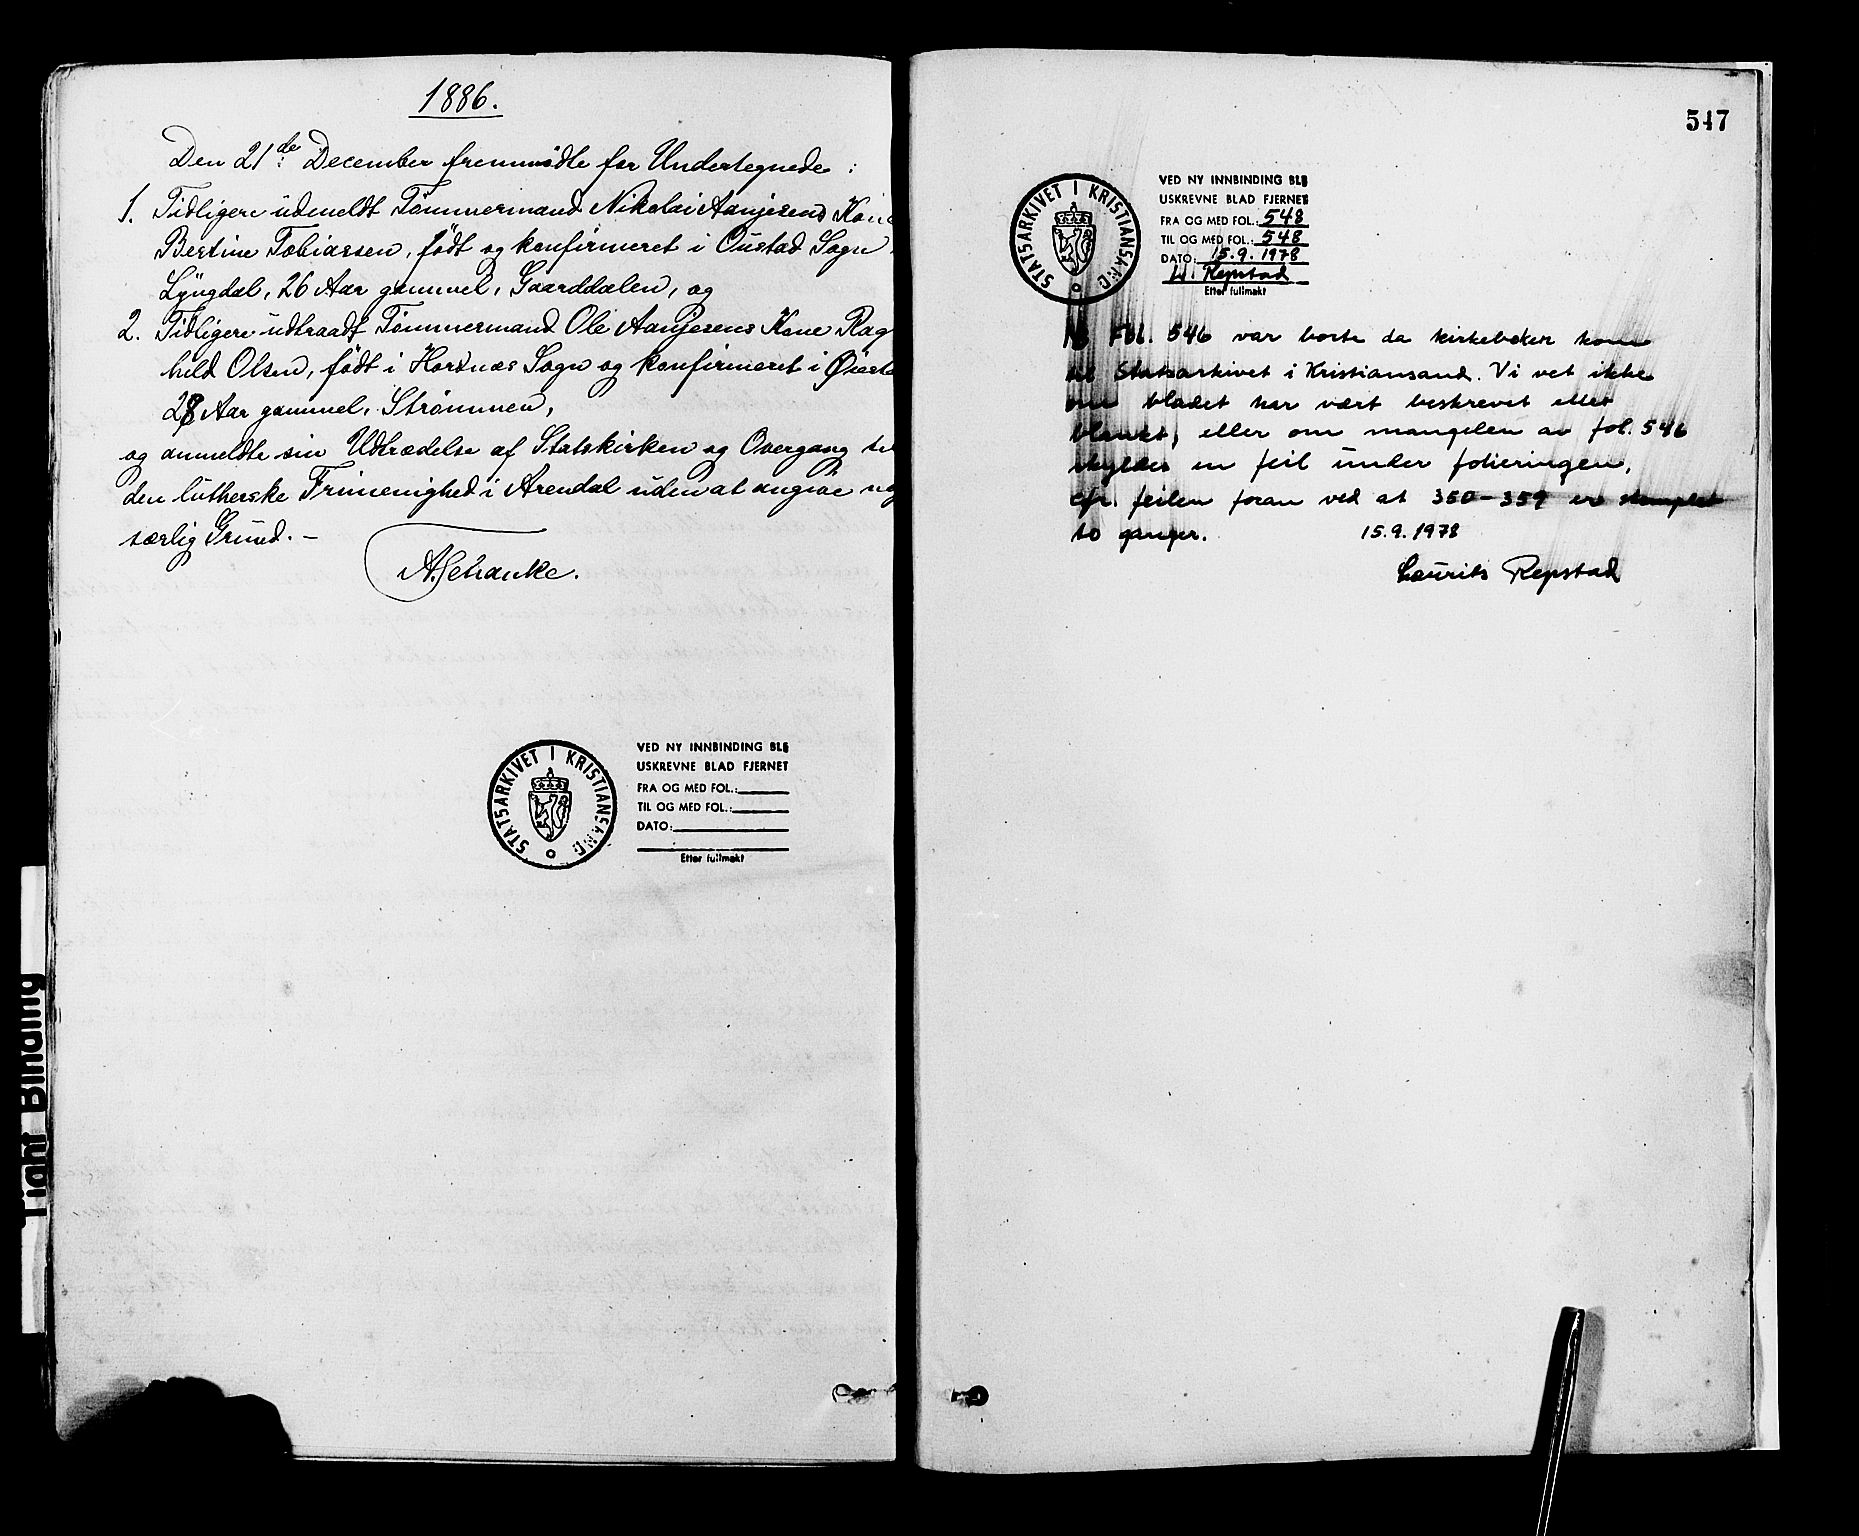 1886.
Den 21de December fremmødte for Undertegnede:
1. Tidligere udmeldt Tømmermand Nikolai Aanjesens Kone
Bertine Tobiassen, født og konfirmeret i Sogn
Lyngdal, 26 Aar gammel, Gaarddalen, og
2. Tidligere udtraadt Tømmermand Ole Aanjesens Kone Rag
hild Olsen, født i Hornnes Sogn og konfirmeret i
28 Aar gammel, Strømmen,
og anmeldte sin Udtrædelse af Statskirken og Overgang til
den lutherske Frimenighed i Arendal uden at angive nog
særlig Grund. –
A. Schanke.
STATSARKIVET I KRISTIANSAND
VED NY INNBINDING BLE
USKREVNE BLAD FJERNET
FRA OG MED FOL.:
TIL OG MED FOL.:
DATO:
Etter fullmakt
547
STATSARKIVET I KRISTIANSAND
VED NY INNBINDING BLE
USKREVNE BLAD FJERNET
FRA OG MED FOL.: 548
TIL OG MED FOL.: 548
DATO: 15.9.1978
L. Repstad
Etter fullmakt
NB Fol. 546 var borte da kirkeboken kom
til Statsarkivet i Kristiansand. Vi vet ikke
om bladet har vært beskrevet eller
blankt, eller om mangelen av fol. 546
skyldes en feil under folieringen,
cfr. feilen foran ved at 350-359 er stemplet
to ganger. 15.9.1978
Laurits Repstad